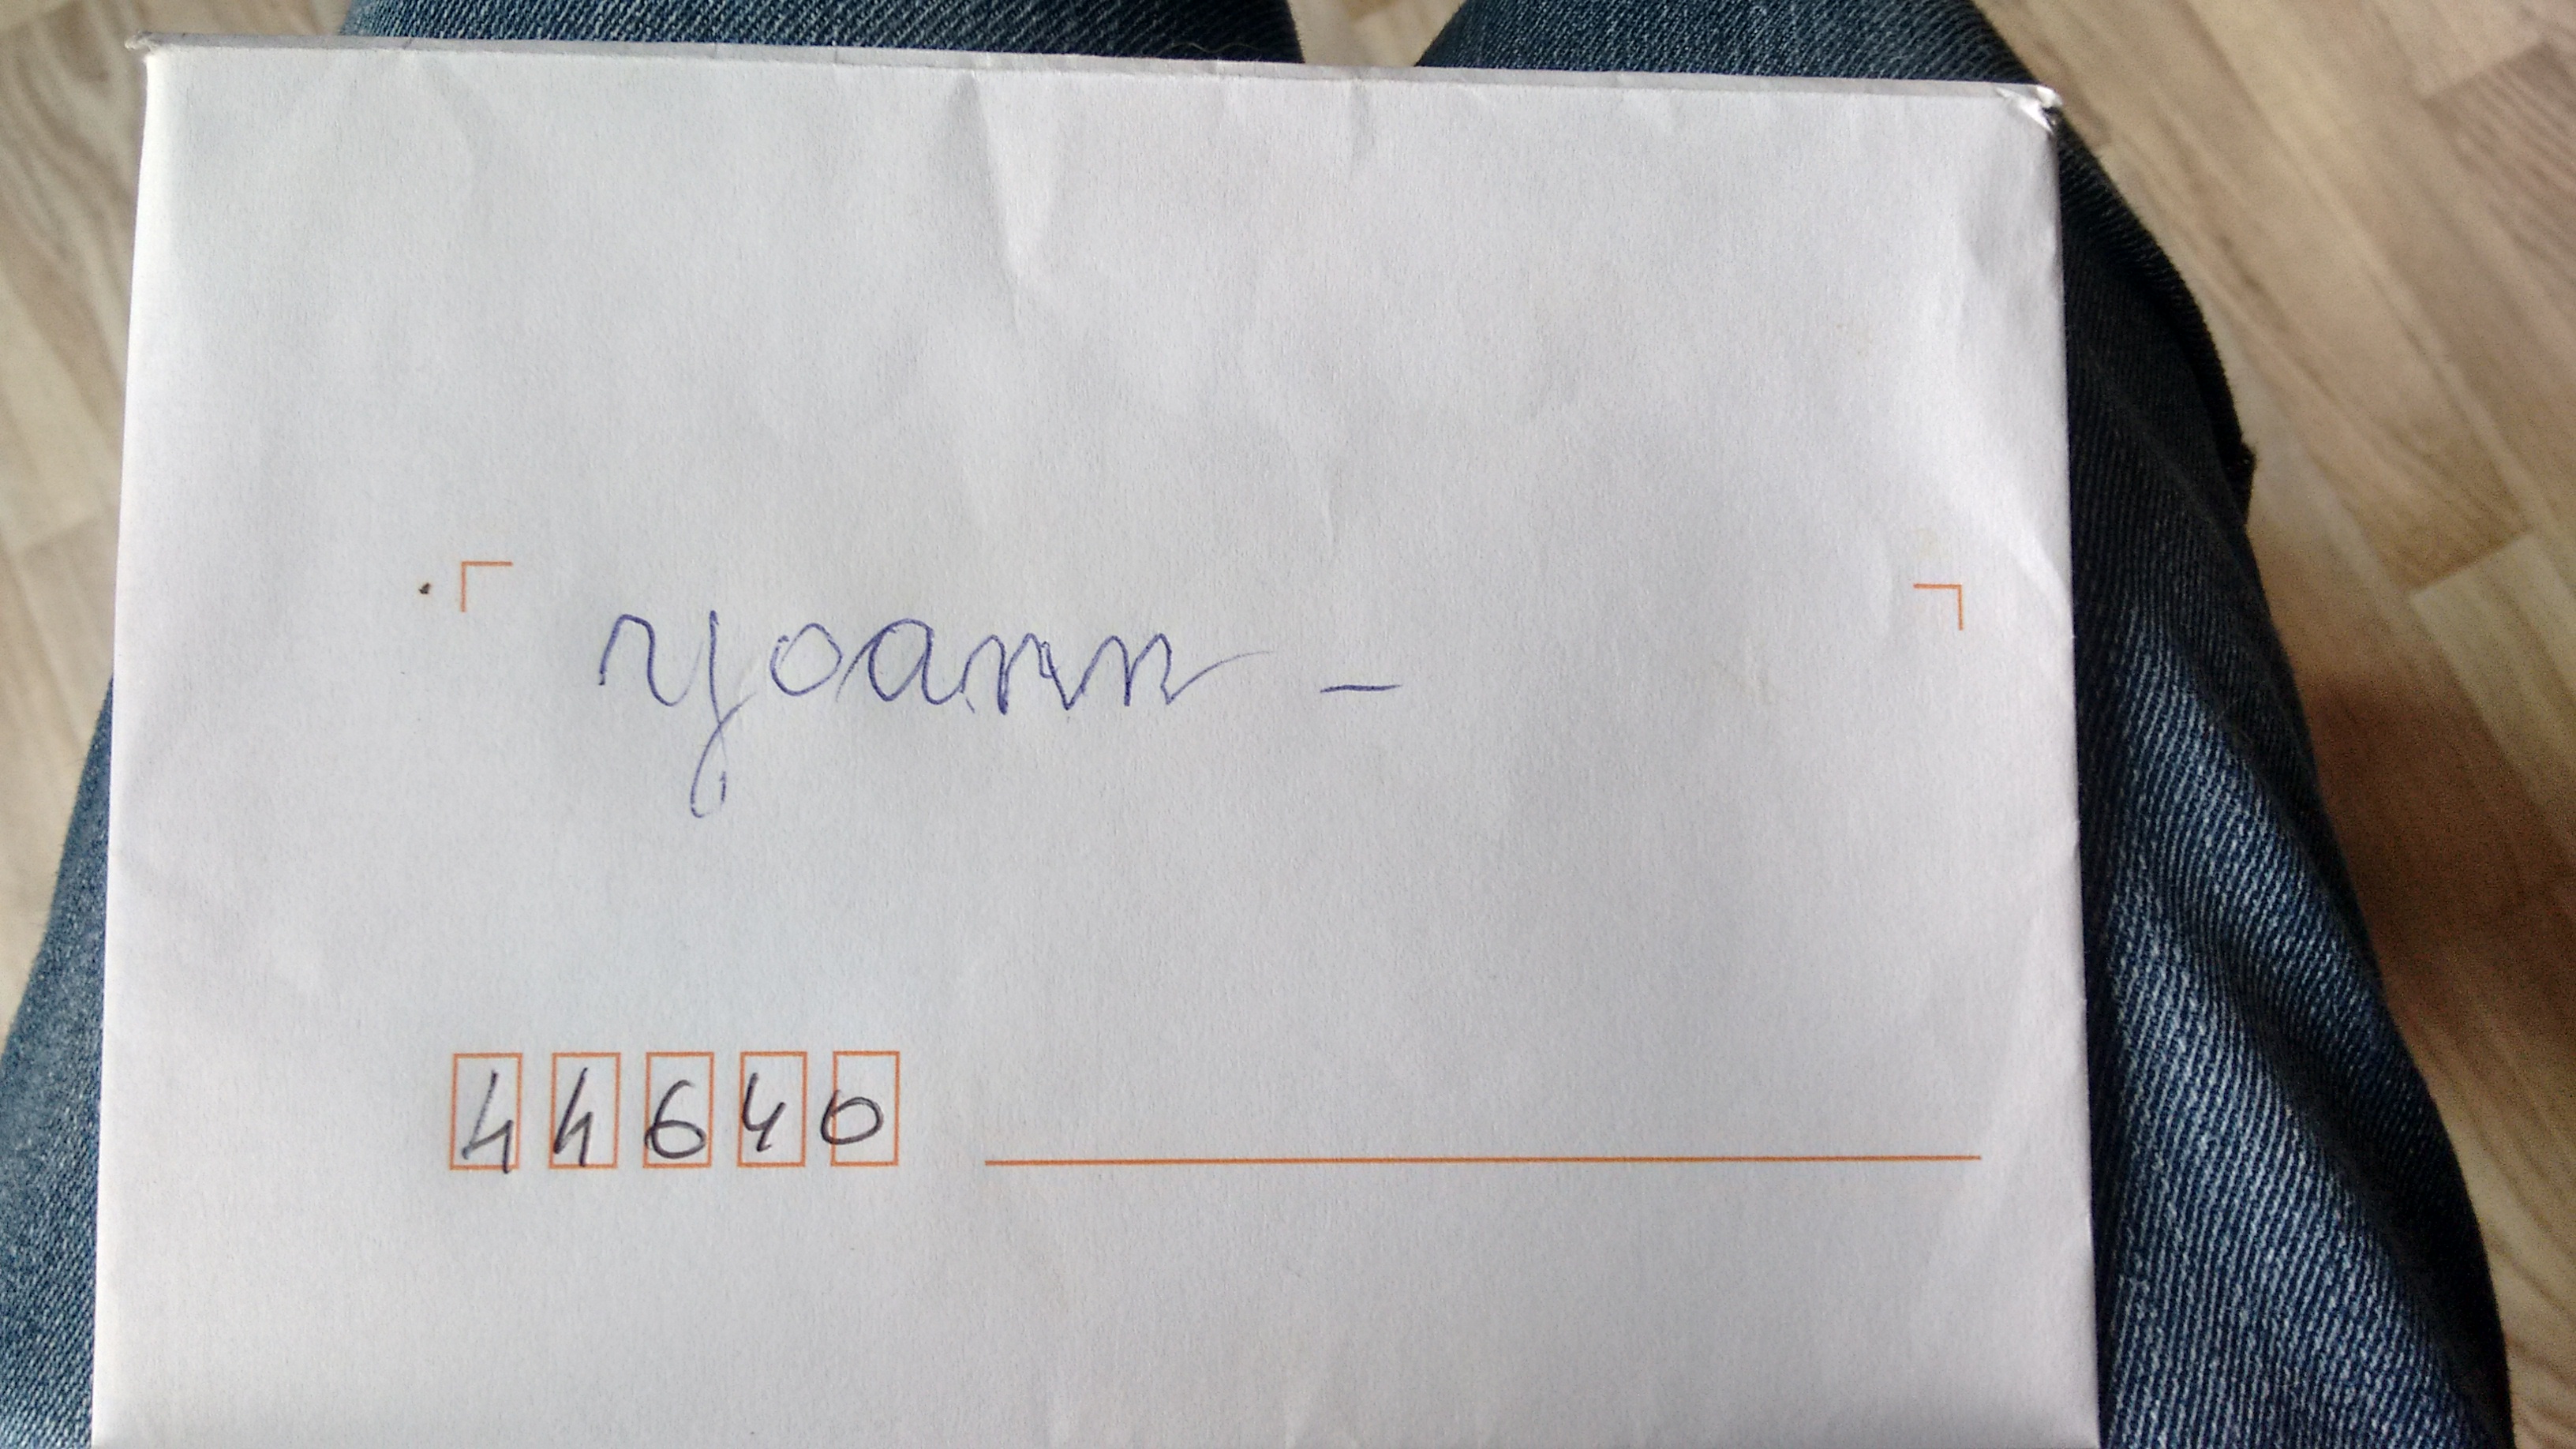 Yoann -
44640